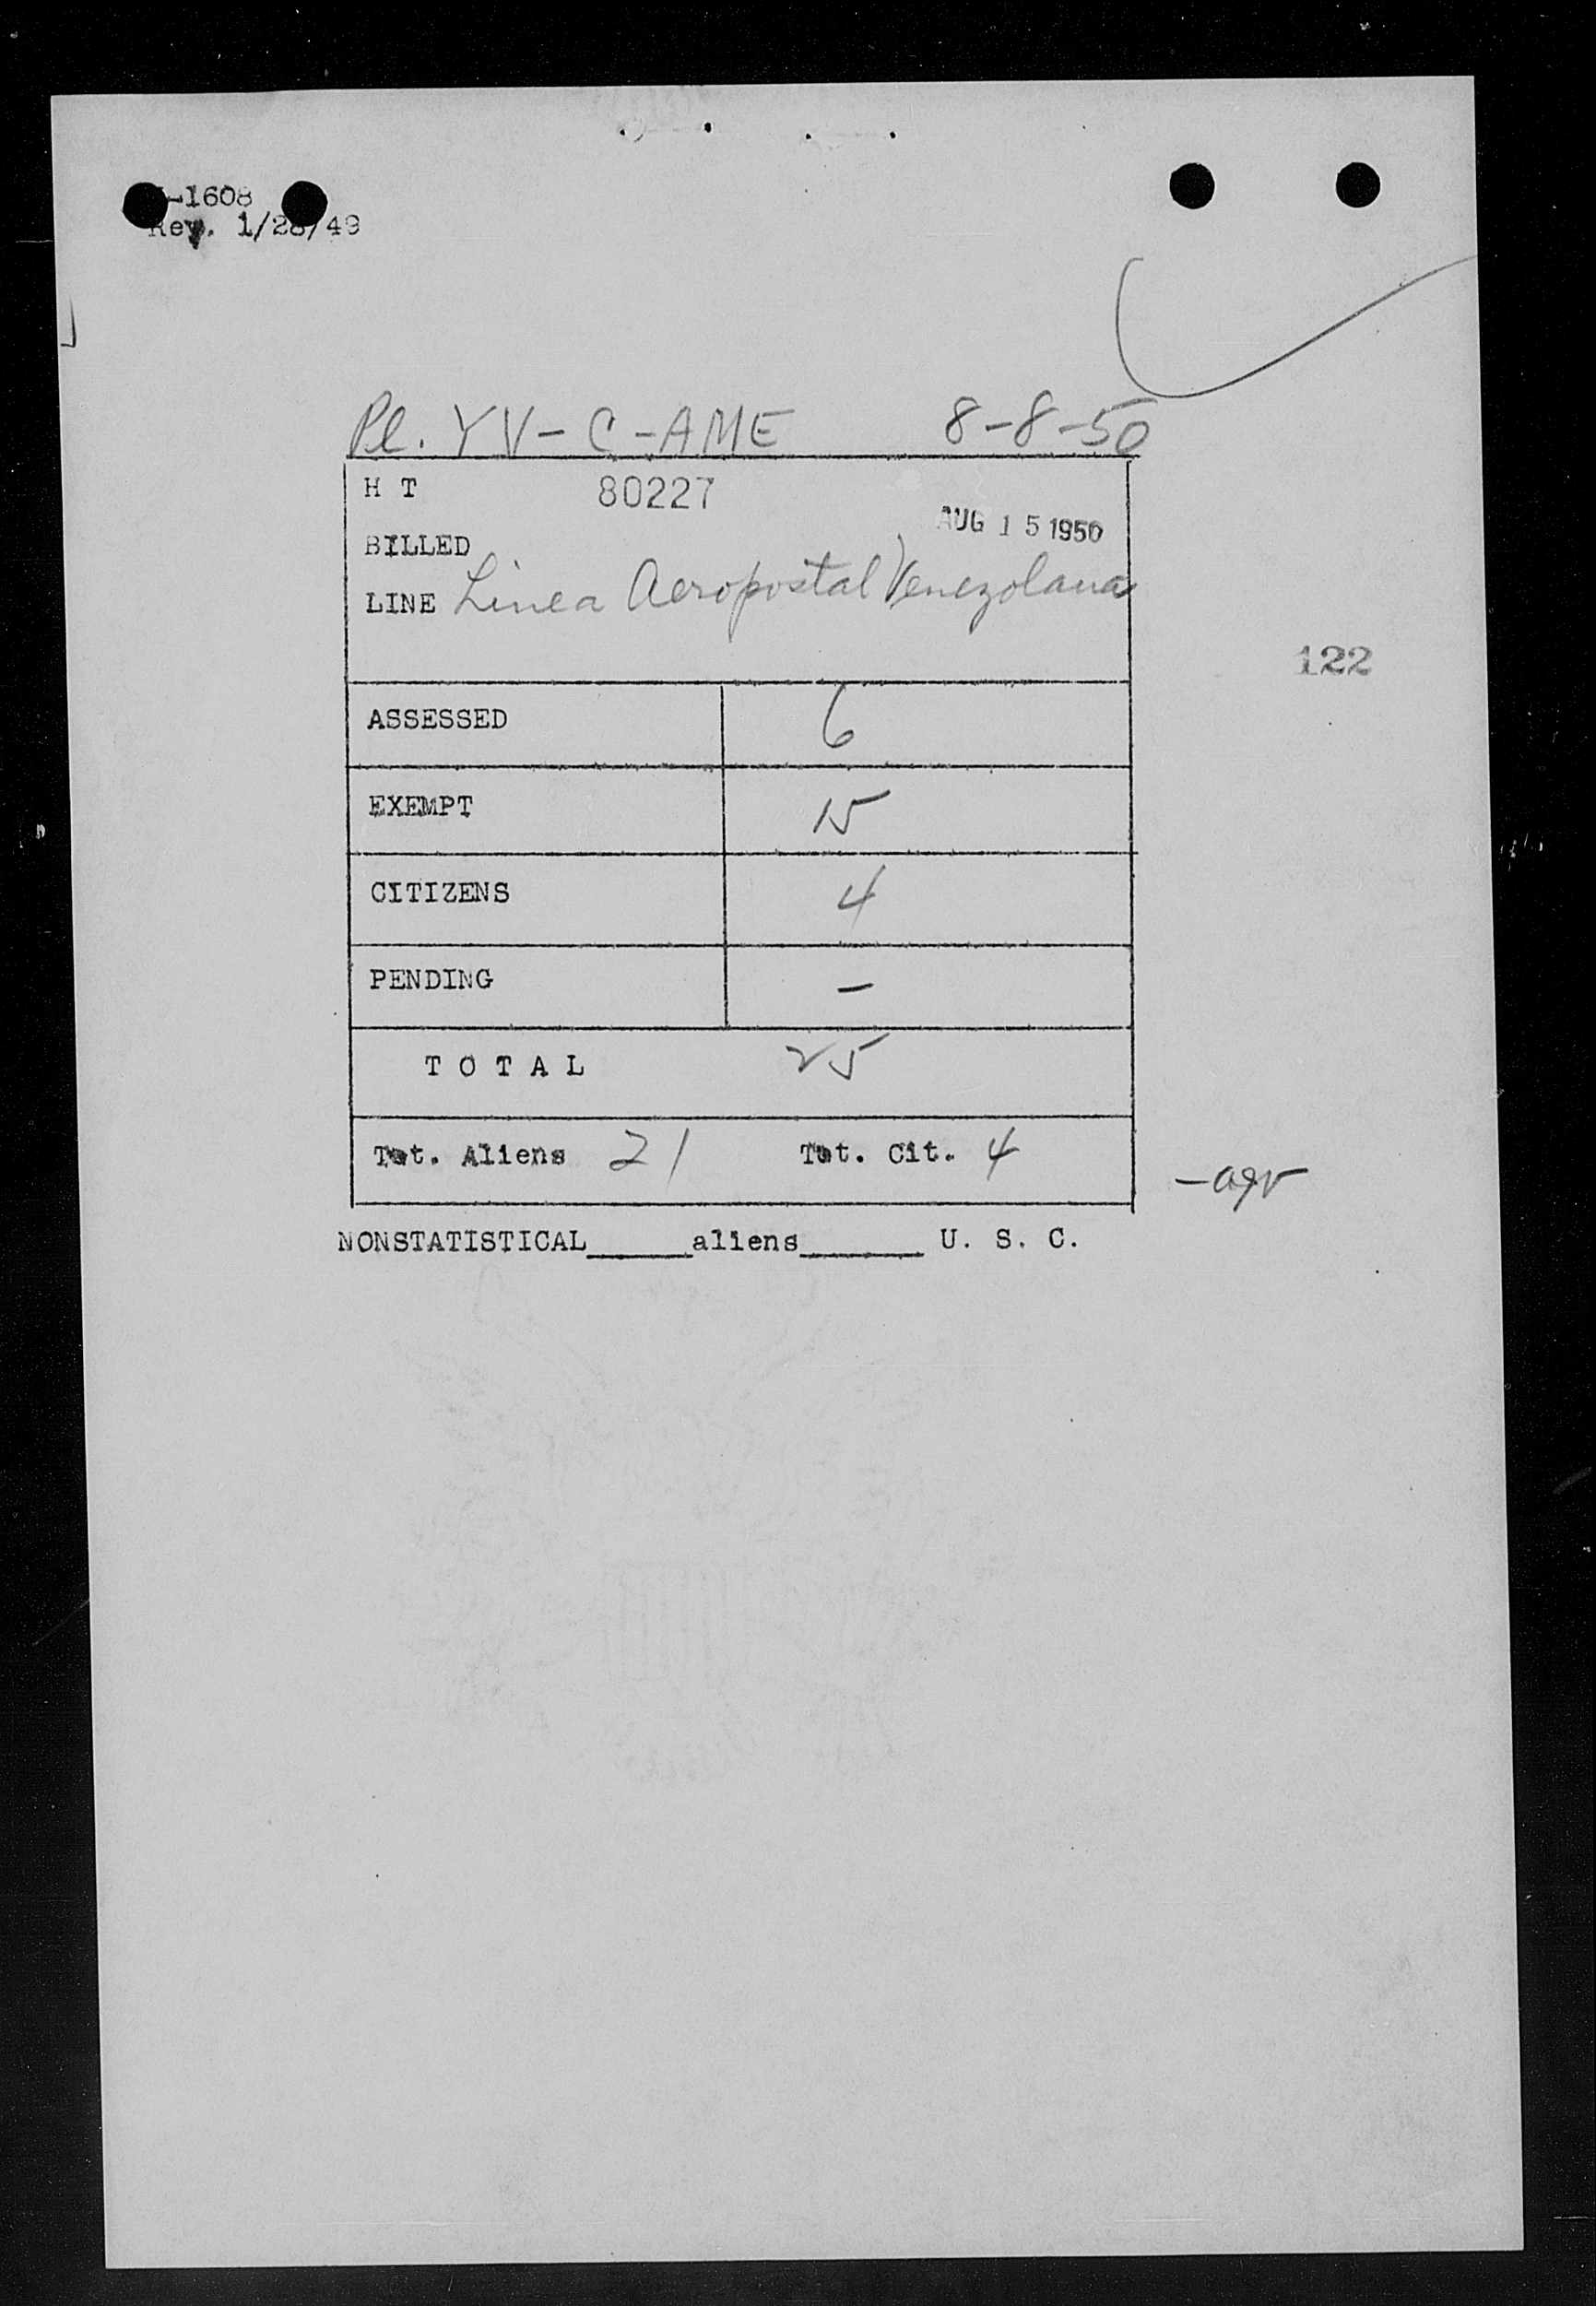 -1608
Rev. 1/28/49
Pl. YV-C-AME 8-8-50
H T 80227
AUG 15 1950
BILLED
LINE Linea Aeropostal Venezolana
122
ASSESSED 6
EXEMPT 15
CITIZENS 4
PENDING -
T O T A L 25
Tot. Aliens 21 Tot. Cit. 4
NONSTATISTICAL______aliens_______ U. S. C.